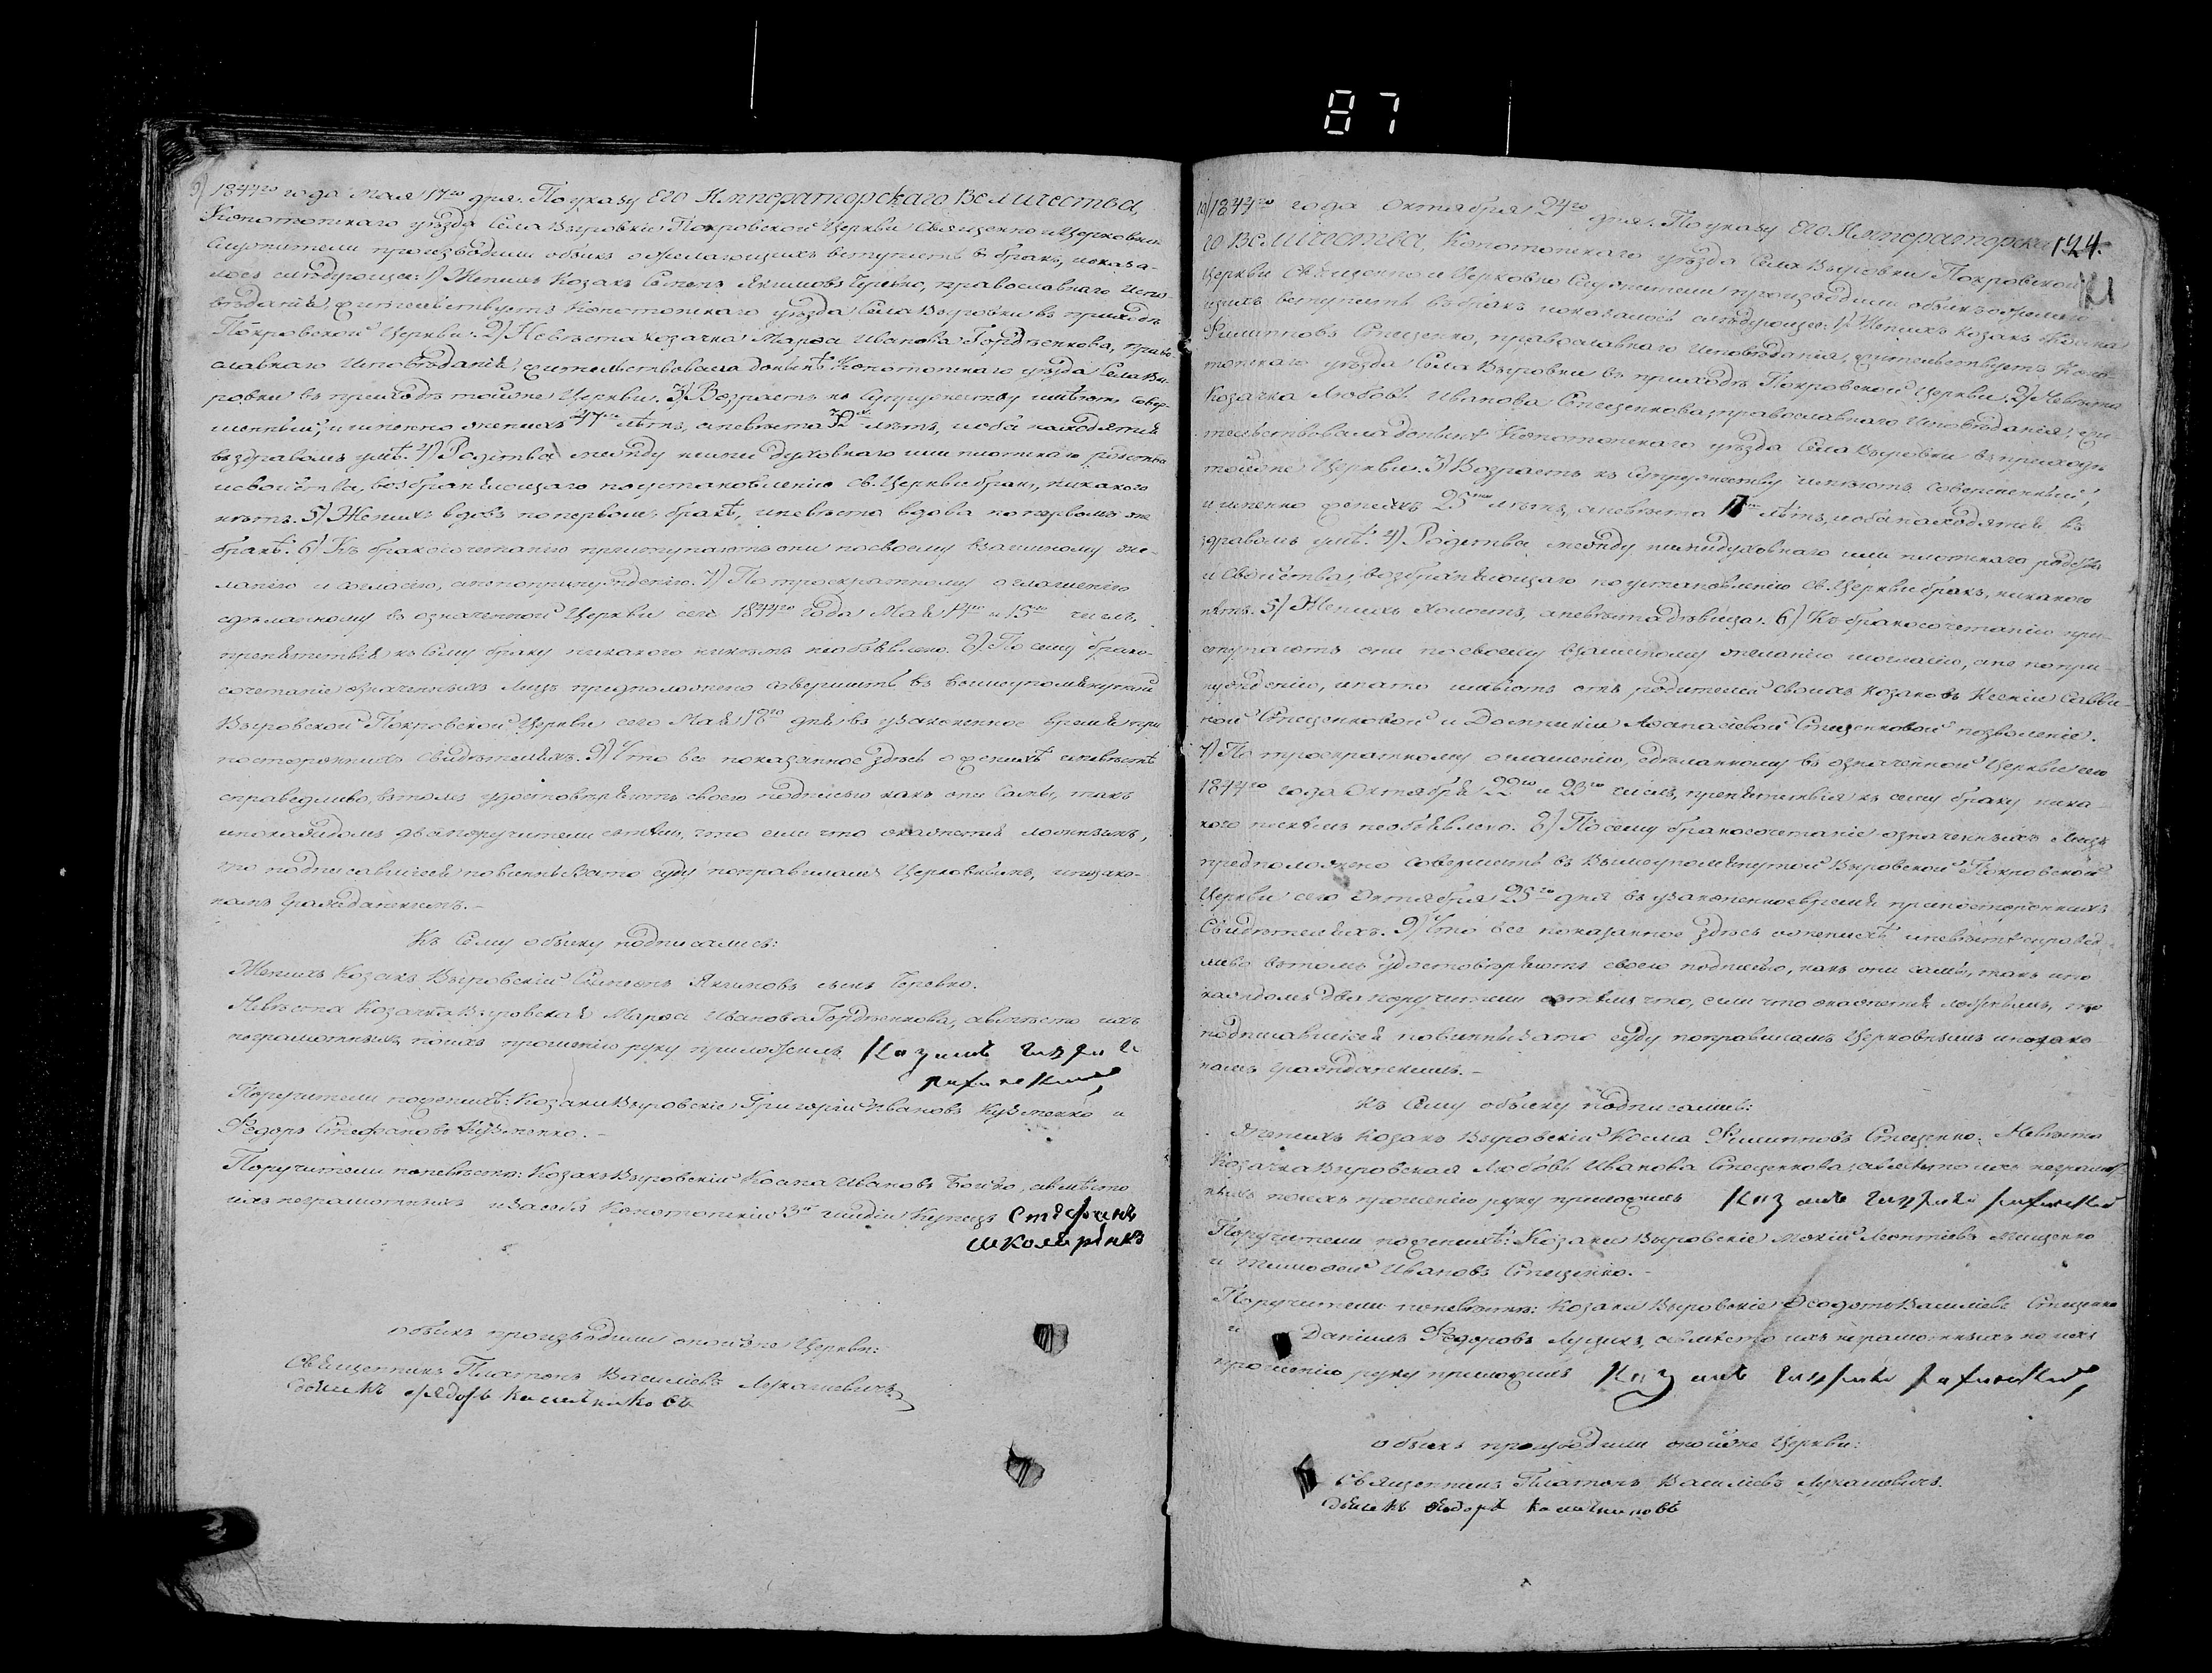 87
9) 1844го года мая 17го дня. По указу Его Императорскаго Величества,
Конотопскаго уѣзда Села Выровки Покровской Церкви Священно и Церковно
служители производили обыскъ о желающихъ вступить в бракъ, и оказа-
лось слѣдующее: 1) Женихъ Козакъ Симеонъ Якимовъ Теревко, православнаго Испо-
вѣданія, жительствуетъ Конотопскаго уѣзда Села Выровки въ приходѣ
Покровской Церкви. 2) Невѣста козачка Марѳа Иванова Гордѣенкова, право-
славнаго Исповѣданія, жительствовала донынѣ Конотопскаго уѣзда Села Вы-
ровки въ приходѣ тойже Церкви. 3) Возрастъ къ Супружеству имѣютъ совер-
шенный, и именно женихъ 47 лѣтъ, а невѣста лѣтъ, и оба находятся
въ здравомъ умѣ. 4) Родства между ними духовнаго или плотскаго родства
и свойства, возбраняющаго по установленію Св. Церкви бракъ, никакого
нѣтъ. 5) Женихъ вдовъ по первомъ бракѣ, и невѣста вдова по первомъ же
бракѣ. 6) Къ бракосочетанію приступаютъ они по своему взаимному же-
ланію и согласію, а не по принужденію. 7) По троекратному оглашенію
сдѣланному въ означенной Церкви сего 1844го года Мая 14го и 15го числъ,
препятствія къ сему браку никакого никѣмъ не объявлено. 8) По сему брако-
сочетаніе означенныхъ лицъ предположено совершить въ вышеупомянутой
Выровской Покровской Церкви сего Мая 18го дня въ узаконенное время при
постороннихъ свидѣтеляхъ. 9) Что все показанное здѣсь о женихѣ и невѣстѣ
справедливо, въ томъ удостовѣряютъ своею подписью какъ они сами, такъ
и по каждомъ два поручители съ тѣмъ, что если что окажется ложнымъ,
то подписавшіеся повинны за то суду по правиламъ Церковнымъ, и по зако-
намъ гражданскимъ.-
Къ сему обыску подписались:
Женихъ Козакъ Выровскій Симеонъ Якимовъ сынъ Теревко.
Невѣста Козачка Выровская Марѳа Иванова Гордѣенкова, а вмѣсто ихъ
неграмотныхъ по ихъ прошенію руку приложилъ
Поручители по женихѣ: Козаки Выровскіе Григорій Ивановъ Кузменко и
Ѳедоръ Стефановъ Кузменко.-
Поручители по невѣстѣ: Козакъ Выровскій Косма Ивановъ Бойко, а вмѣсто
ихъ неграмотныхъ и за себя Конотопскій 3й гильдіи Купецъ Стефанъ
Шкляринъ
Обыскъ производили онойже Церкви:
Священникъ Платонъ Василіевъ Лукашевичъ
Дьячекъ Ѳедоръ
10) 1844го года Октября 24го дня. По указу Его Императорска 124.
го Величества, Конотопскаго уѣзда Села Выровки Покровской
Церкви Священно и Церковно Служители производили обыскъ о желаю-
щихъ вступить въ бракъ и оказалось слѣдующее: 1) Женихъ козакъ Косма
Филипповъ Стеценко, православнаго Исповѣданія, жительствуетъ Коно-
топскаго уѣзда Села Выровки въ приходѣ Покровской Церкви. 2) Невѣста
Козачка Любовь Иванова Стеценкова, православнаго Исповѣданія, жи-
тельствовала донынѣ Конотопскаго уѣзда Села Выровки въ приходѣ
тойже Церкви. 3) Возрастъ къ Супружеству имѣютъ совершенный,
и именно женихъ 25 лѣтъ, а невѣста 17 лѣтъ, и оба находятся въ
здравомъ умѣ. 4) Родства между ними духовнаго или плотскаго родства
и свойства, возбраняющаго по установленію Св. Церкви бракъ, никакого
нѣтъ. 5) Женихъ холостъ, а невѣста дѣвица. 6) Къ бракосочетанію при-
ступаютъ они по своему взаимному желанію и согласію, а не по при-
нужденію, и на то имѣютъ отъ родителей своихъ козаковъ Ксеніи Савви-
ной Стеценковой и Домникіи Аѳанасіевой Стеценковой позволеніе.
7) По троекратному оглашенію, сдѣланному въ означенной Церкви сего
1844го года Октября 22го и 23го числъ, препятствія къ сему браку ника-
кого никѣмъ не объявлено. 8) По сему бракосочетаніе означенныхъ лицъ
предположено совершить въ вышеупомянутой Выровской Покровской
Церкви сего Октября 25го дня въ узаконенное время при постороннихъ
Свидѣтеляхъ. 9) Что все показанное здѣсь о женихѣ и невѣстѣ справед-
ливо въ томъ удостовѣряютъ своею подписью, какъ они сами, такъ и по
каждомъ два поручители съ тѣмъ что, если что окажется ложнымъ, то
подписавшіеся повинны за то суду по правиламъ Церковнымъ и по зако-
намъ гражданскимъ.-
Къ сему обыску подписались:
Женихъ Козакъ Выровскій Косма Филипповъ Стеценко. Невѣста
Козачка Выровская Любовь Иванова Стеценкова, а вмѣсто ихъ неграмот-
ныхъ по ихъ прошенію руку приложилъ
Поручители по женихѣ: Козаки Выровскіе Мокій Леонтіевъ Мищенко
и Тимоѳей Ивановъ Стеценко.-
Поручители по невѣстѣ: Козаки Выровскіе Ѳеодотъ Василіевъ Стеценко
и Даніилъ Ѳедоровъ Луцикъ, а вмѣсто ихъ неграмотныхъ по ихъ
прошенію руку приложилъ
Обыскъ производили онойже Церкви:
Священникъ Платонъ Василіевъ Лукашевичъ.
Дьячекъ Ѳеодоръ